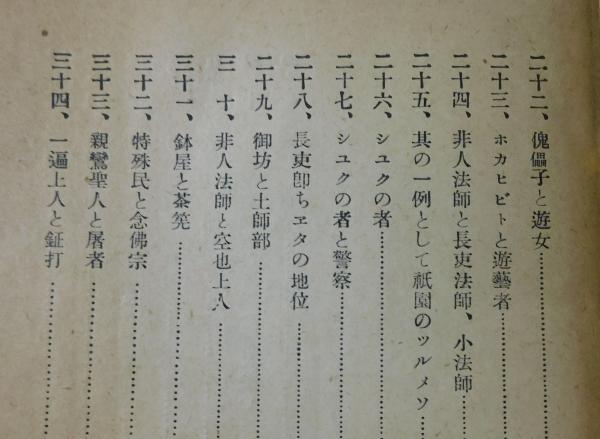 二十二、傀儡子と遊女
二十三、ホカヒビトと遊藝者
二十四、非人法師と長吏法師、小法師
二十五、其の一例として祇園のツルメソ
二十六、シユクの者
二十七、シユクの者と警察
二十八、長吏卽ちヱタの地位
二十九、御坊と土師部
三十、非人法師と空也上人
三十一、鉢屋と茶筅
三十二、特殊民と念佛宗
三十三、親鸞聖人と屠者
三十四、一遍上人と鉦打